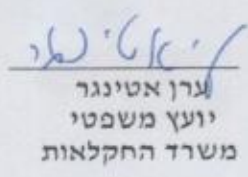 ערן אטינגר
יועץ משפטי
משרד החקלאות